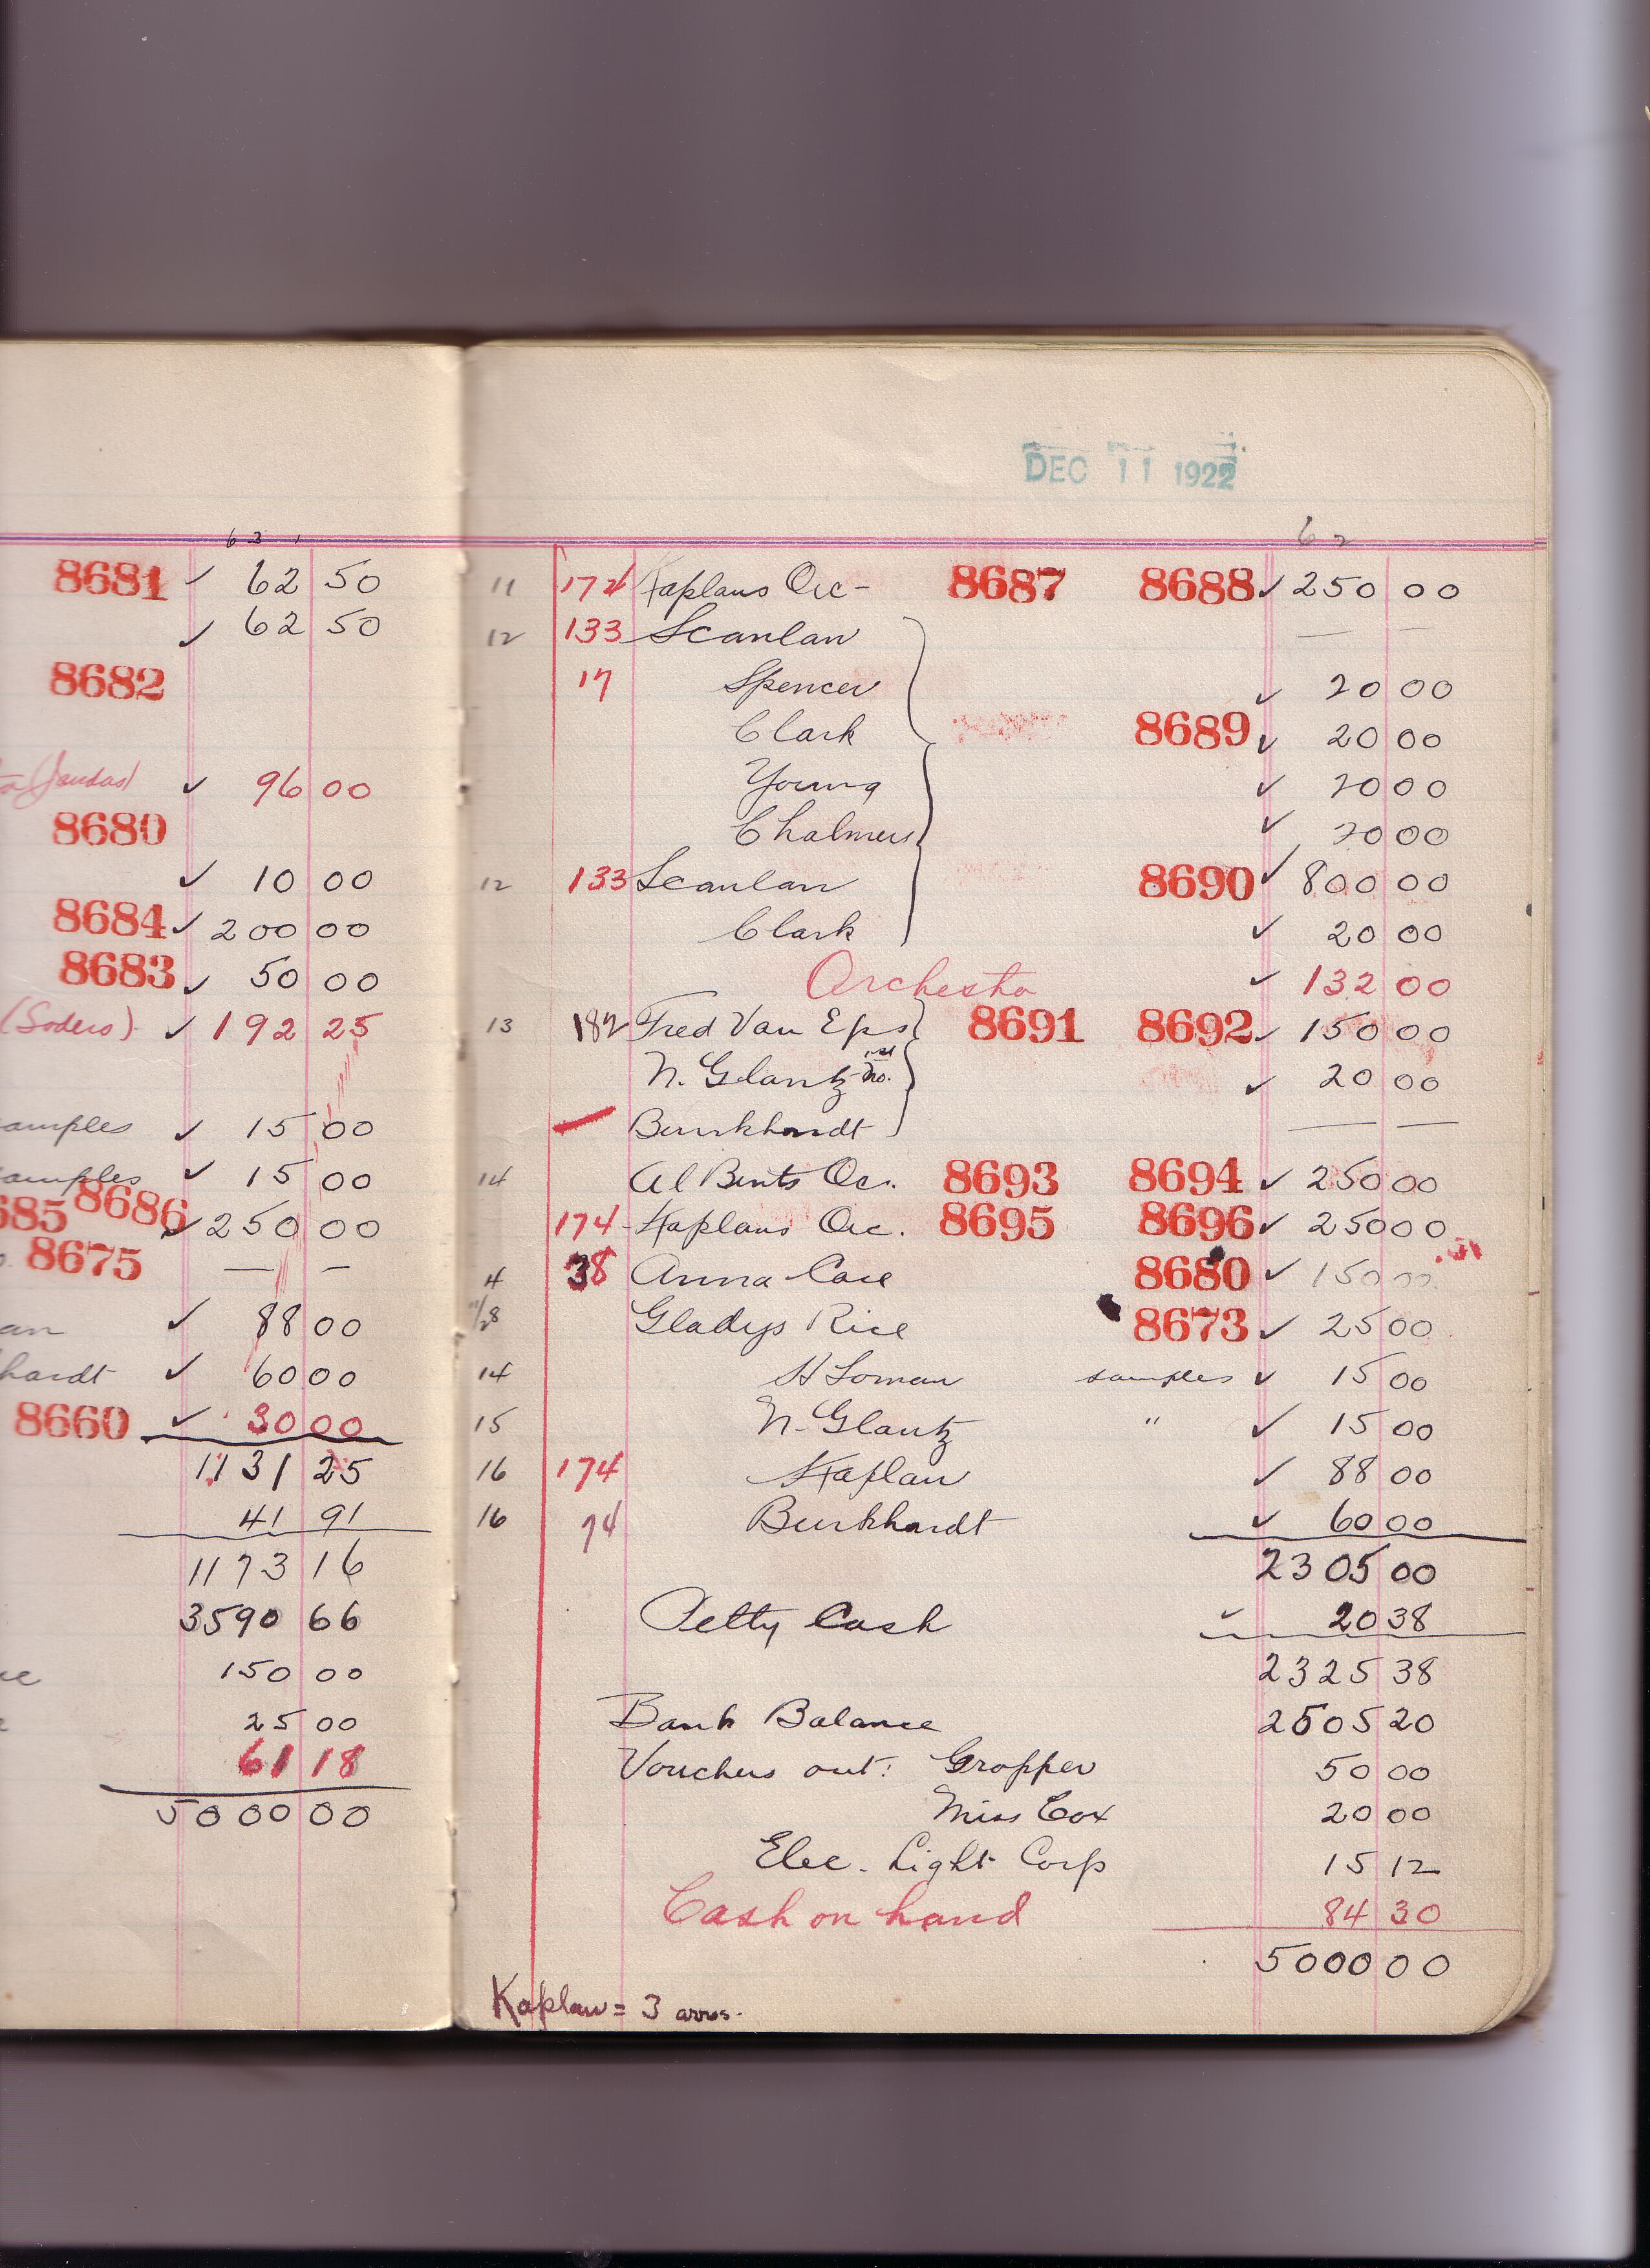 6 2 1
8681 ✓ 62 50
✓ 62 50
8682
✓ 96 00
8680
✓ 10 00
8684 ✓ 200 00
8683 ✓ 50 00
(Soders) ✓ 192 25
amples ✓ 15 00
amples ✓ 15 00
685 8686 ✓ 250 00
8675 — —
an ✓ 88 00
hardt ✓ 60 00
8660 ✓ 30 00
1131 25
41 91
1173 16
3590 66
150 00
25 00
61 18
5000 00
DEC 11 1922
6 2
11 174 Kaplans Orc- 8687 8688 ✓ 250 00
12 133 Scanlan — —
17 Spencer ✓ 20 00
Clark 8689 ✓ 20 00
Young ✓ 20 00
Chalmers ✓ 20 00
12 133 Scanlan 8690 ✓ 800 00
Clark ✓ 20 00
Orchestra ✓ 132 00
13 182 Fred Van Eps 8691 8692 ✓ 150 00
N. Glantz ✓ 20 00
— Burkhardt — —
14 Al Bents Oc. 8693 8694 ✓ 250 00
174 Kaplans Orc. 8695 8696 ✓ 250 00
4 38 Anna Case 8680 ✓ 150 00
11/28 Gladys Rice 8673 ✓ 25 00
14 H Loman samples ✓ 15 00
15 N. Glantz " ✓ 15 00
16 174 Kaplan ✓ 88 00
16 74 Burkhardt ✓ 60 00
2305 00
Petty Cash ✓ 20 38
2325 38
Bank Balance 2505 20
Vouchers out: Gropper 50 00
Miss Cox 20 00
Elec. Light Corp 15 12
Cash on hand 84 30
5000 00
Kaplan = 3 arrs.